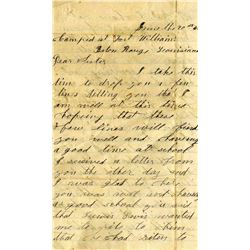 Camped at Fort Williams
Baton Rouge Louisiana
Dear Sister
I take this
time to drop you a few
lines telling you that I
am well at this time
hopeing that these
few lines will find
you well and haveing
a good times at school
I received a letter from
you the other day and
I was glad to hear
you was well and
a good school you said
that Davis wanted
me to write to them